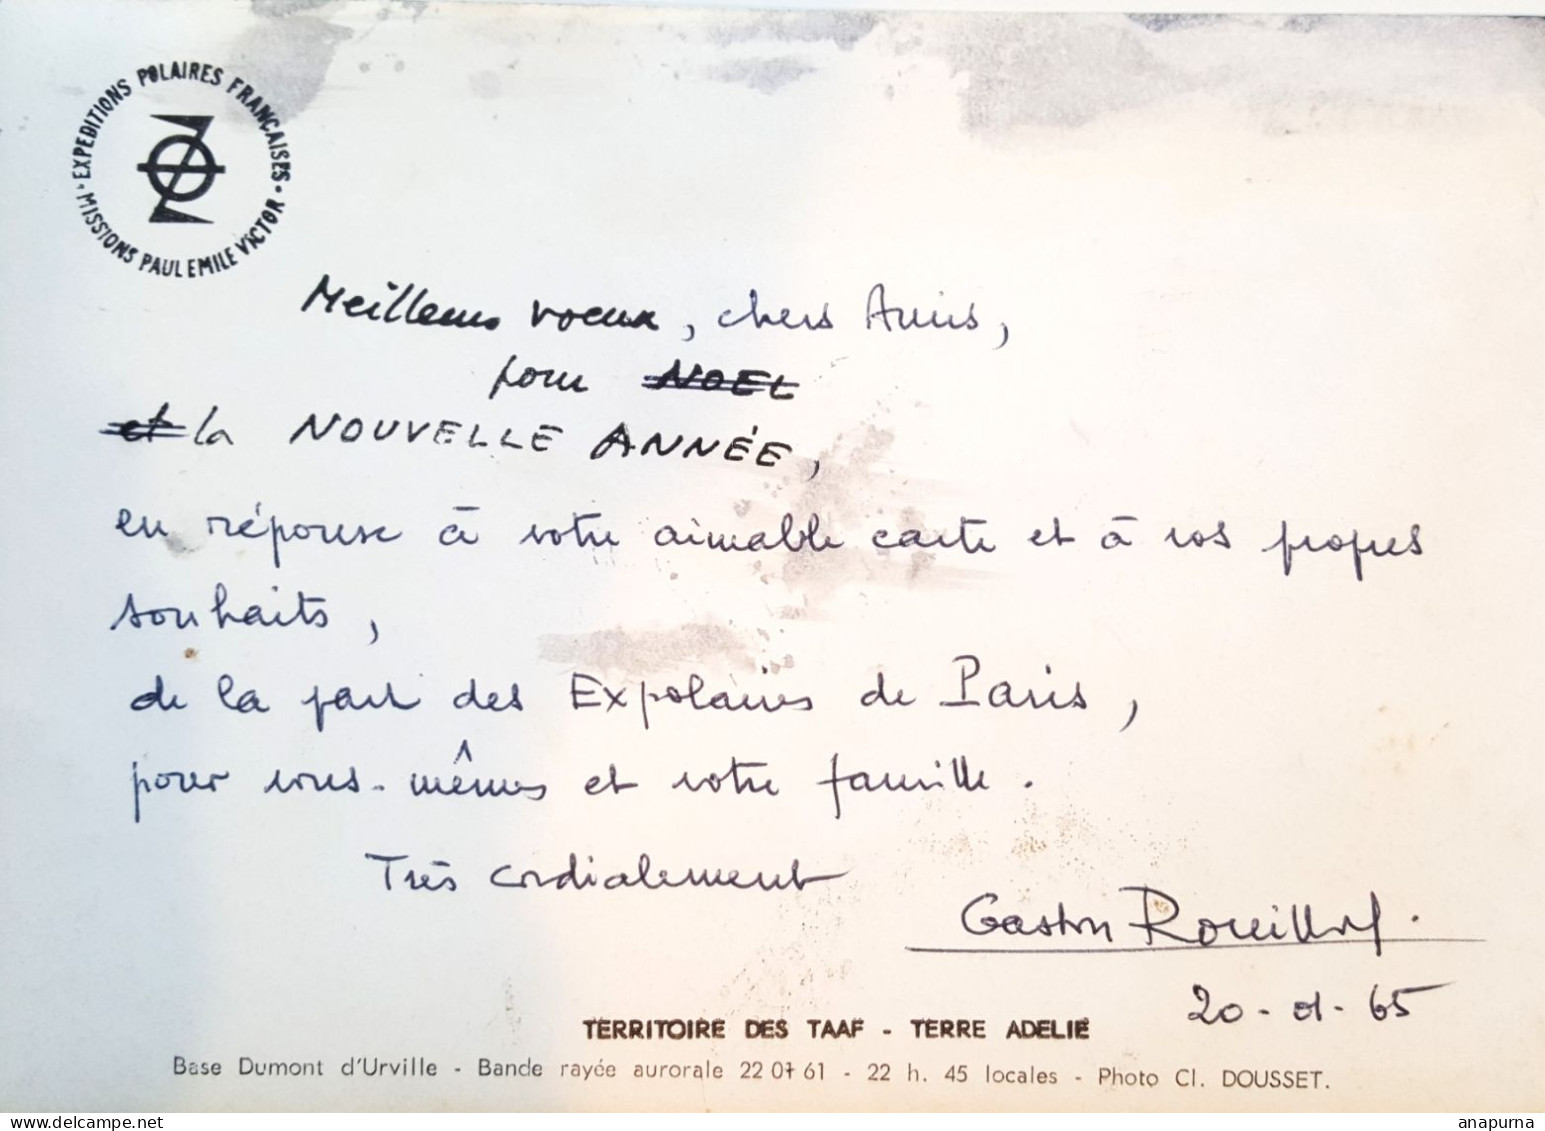 EXPEDITIONS POLAIRES FRANÇAISES •
MISSIONS PAUL EMILE VICTOR •
Meilleurs voeux, chers Amis,
pour NOEL
et la NOUVELLE ANNÉE,
en réponse à votre aimable carte et à vos propres
souhaits,
de la part des Expolaires de Paris,
pour vous-mêmes et votre famille.
Très cordialement
Gaston Rouillon.
20-01-65
TERRITOIRE DES TAAF - TERRE ADELIE
Base Dumont d'Urville - Bande rayée aurorale 22 07 61 - 22 h. 45 locales - Photo Cl. DOUSSET.
delcampe.net
anapurna